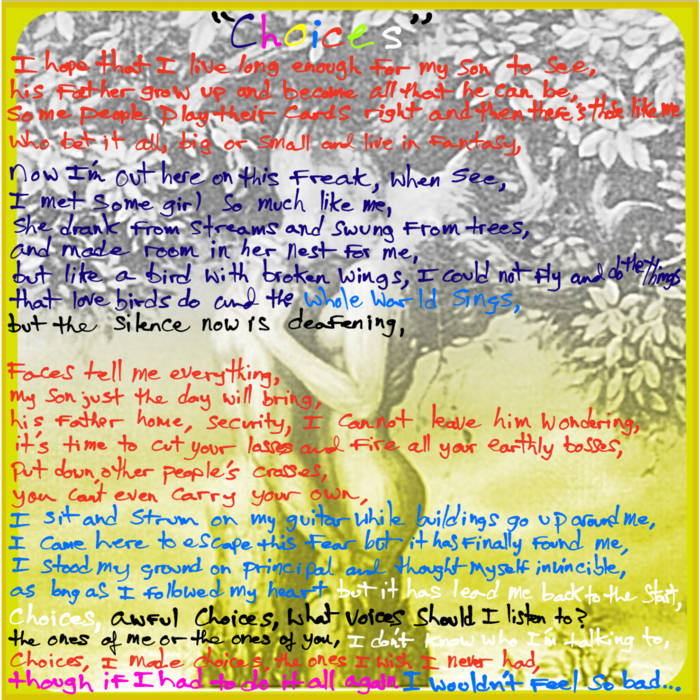 "Choices"
I hope that I live long enough for my son to see,
his Father grow up and become all that he can be,
Some people play their cards right and then there's those like me
who bet it all, big or small and live in Fantasy,
Now I'm out here on this Freak, when see,
I met some girl so much like me,
She drank from streams and swung from trees,
and made room in her nest for me,
but like a bird with broken wings, I could not fly and do the things
that love birds do and the whole world sings,
but the silence now is deafening,
Faces tell me everything,
my son just the day will bring,
his Father home, security, I cannot leave him wondering,
it's time to cut your losses and fire all your earthly bosses,
Put down other people's crosses,
you can't even carry your own,
I sit and strum on my guitar while buildings go up around me,
I came here to escape this fear but it has finally found me,
I stood my ground on principal and thought myself invincible,
as long as I followed my heart but it has lead me back to the start,
Choices, awful choices, what voices should I listen to?
the ones of me or the ones of you, I don't know who I'm talking to,
Choices, I made choices, the ones I wish I never had,
though if I had to do it all again I wouldn't feel so bad...